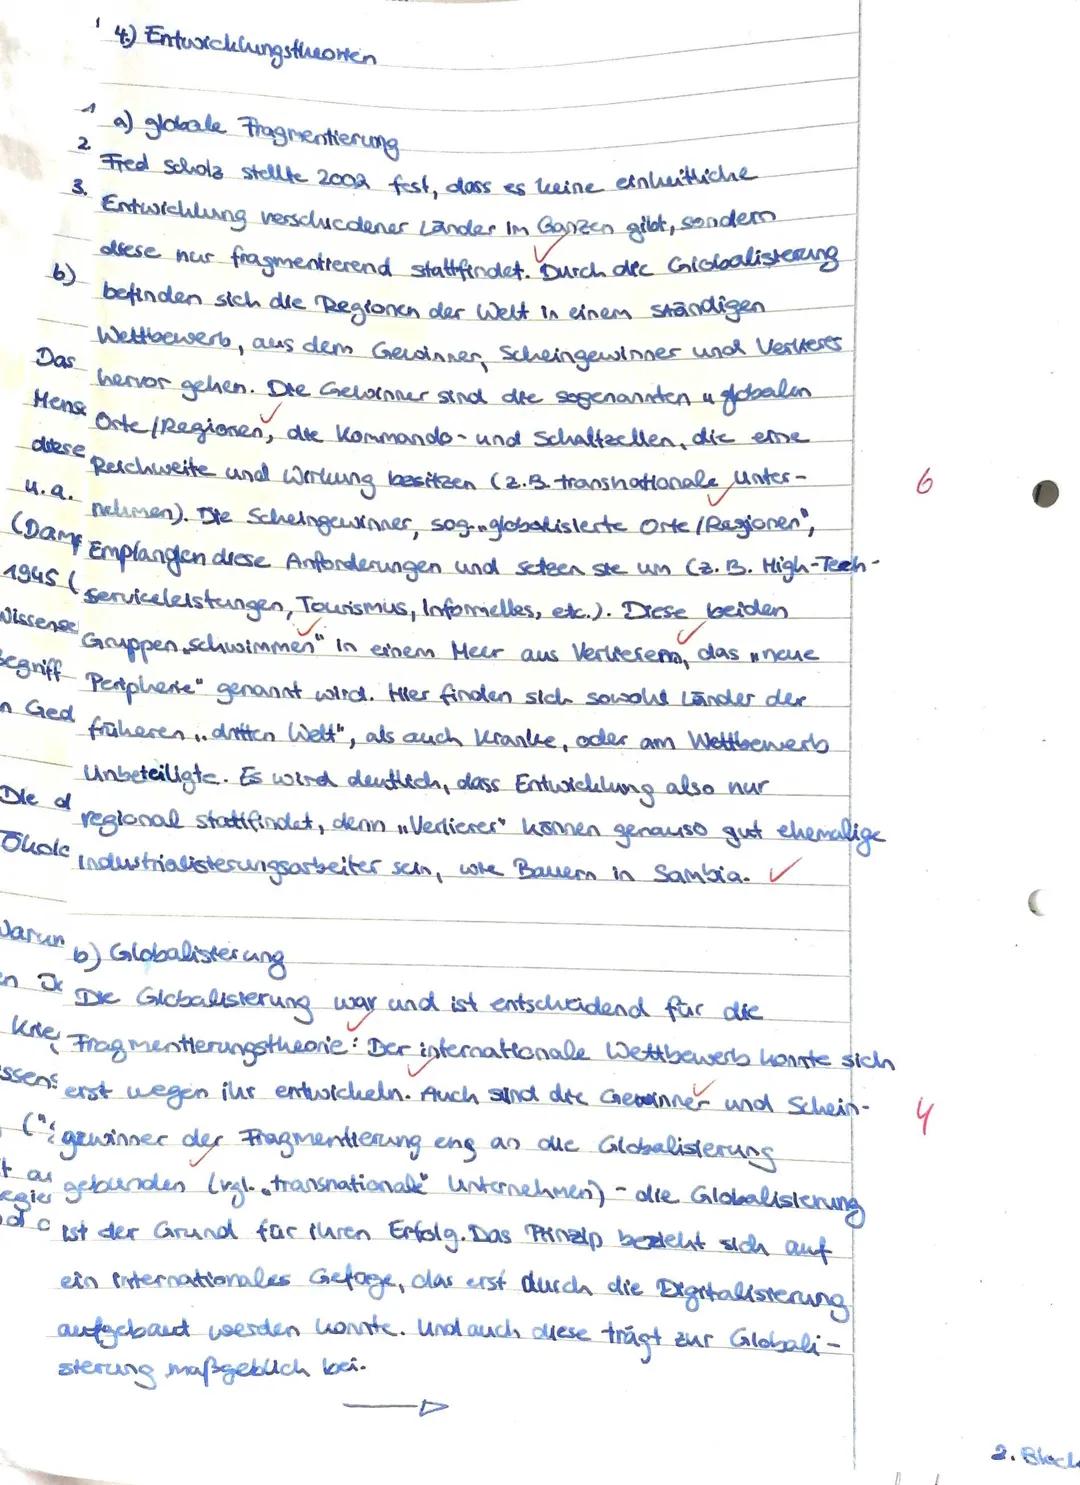 4.) Entwicklungstheorien
1
a) globale Fragmentierung
2.
Fred Scholz stellte 2002 fest, dass es keine einheitliche
3.
Entwicklung verschiedener Länder im Ganzen gibt, sondern
diese nur fragmentierend stattfindet. Durch die Globalisierung
b)
befinden sich die Regionen der Welt in einem ständigen
Wettbewerb, aus dem Gewinner, Scheingewinner und Verlierer
Das
hervor gehen. Die Gewinner sind die sogenannten "globalen
Mens
Orte/Regionen, die Kommando- und Schaltzellen, die eine
diese
Reichweite und Wirkung besitzen (z.B. transnationale Unter-
6
u.a.
nehmen). Die Scheingewinner, sog. "globalisierte Orte/Regionen",
(Damp
Empfangen diese Anforderungen und setzen sie um (z.B. High-Tech-
1945 (
serviceleistungen, Tourismus, Informelles, etc.). Diese beiden
Wissens
Gruppen „schwimmen" in einem Meer aus Verlierern, das „neue
Begriff
Peripherie" genannt wird. Hier finden sich sowohl Länder der
n Ged
früheren „dritten Welt", als auch Kranke, oder am Wettbewerb
Unbeteiligte. Es wird deutlich, dass Entwicklung also nur
Die d
regional stattfindet, denn „Verlierer" können genauso gut ehemalige
Ökolo
Industrialisierungsarbeiter sein, wie Bauern in Sambia.
Warum
b) Globalisierung
Die Globalisierung war und ist entscheidend für die
Krie
Fragmentierungstheorie: Der internationale Wettbewerb konnte sich
ssens
erst wegen ihr entwickeln. Auch sind die Gewinner und Schein-
4
gewinner der Fragmentierung eng an die Globalisierung
gebunden (vgl. „transnationale" Unternehmen) - die Globalisierung
ist der Grund für ihren Erfolg. Das Prinzip bezieht sich auf
ein internationales Gefüge, das erst durch die Digitalisierung
aufgebaut werden konnte. Und auch diese trägt zur Globali-
sierung maßgeblich bei.
2. Block